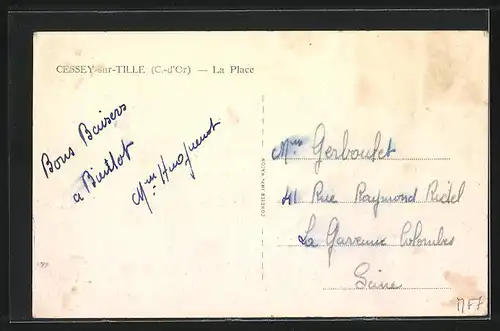 CESSEY-sur-TILLE (C.-d'Or) — La Place
Bons Baisers
a Bientot
Mme Huguenot
Mme Gerboulet
41 Rue Raymond Ridel
La Garenne Colombes
Seine
COMBIER IMP. MACON
MFF